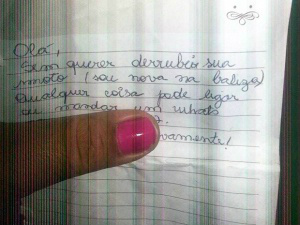 Olá,
Sem querer derrubei sua
moto (sou nova na baliza)
Qualquer coisa pode ligar
ou mandar um whats
7.
vamente!